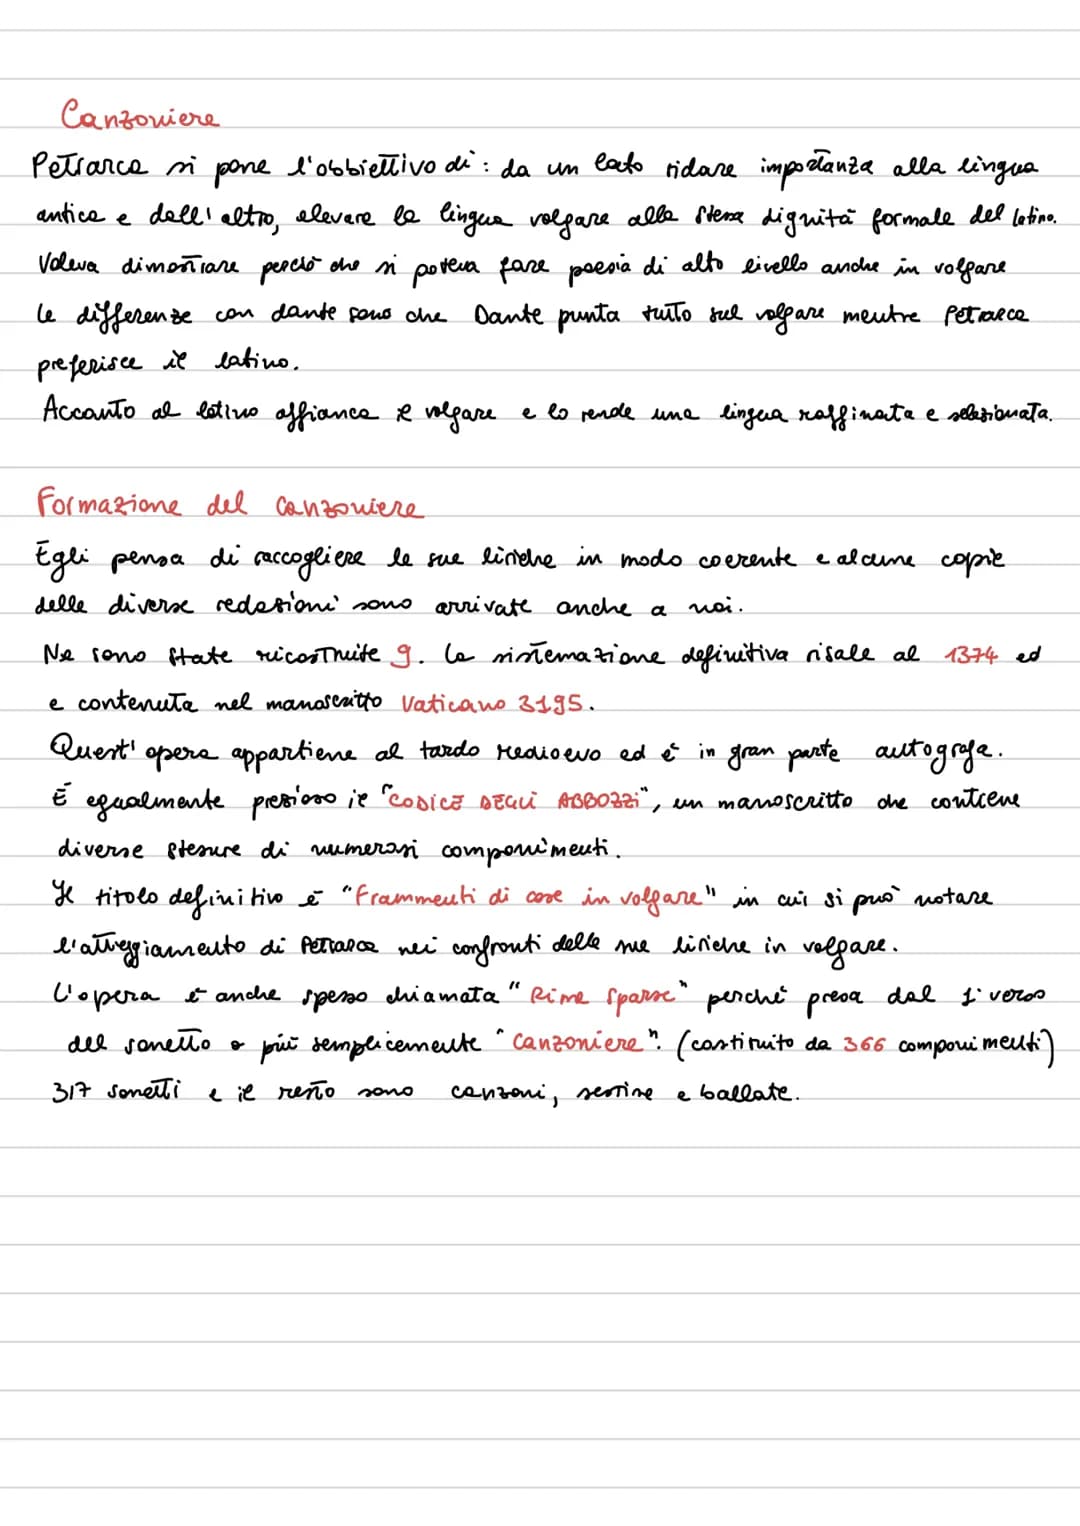 Canzoniere
Petrarca si pone l'obbiettivo di : da un lato ridare importanza alla lingua
antica e dall'altro, elevare la lingua volgare alla stessa dignità formale del latino.
Voleva dimostrare perciò che si poteva fare poesia di alto livello anche in volgare
le differenze con dante sono che Dante punta tutto sul volgare mentre Petrarca
preferisce il latino.
Accanto al latino affianca il volgare e lo rende una lingua raffinata e selezionata.
Formazione del canzoniere
Egli pensa di raccogliere le sue liriche in modo coerente e alcune copie
delle diverse redazioni sono arrivate anche a noi.
Ne sono state ricostruite 9. La sistemazione definitiva risale al 1374 ed
e contenuta nel manoscritto Vaticano 3195.
Quest'opera appartiene al tardo Medioevo ed è in gran parte autografa.
È egualmente prezioso il "CODICE DEGLI ABBOZZI", un manoscritto che contiene
diverse stesure di numerosi componimenti.
Il titolo definitivo è "Frammenti di cose in volgare" in cui si può notare
l'atteggiamento di Petrarca nei confronti delle sue liriche in volgare.
L'opera è anche spesso chiamata "Rime Sparse" perché presa dal 1° verso
del sonetto o più semplicemente "Canzoniere". (costituito da 366 componimenti)
317 sonetti e il resto sono canzoni, sestine e ballate.